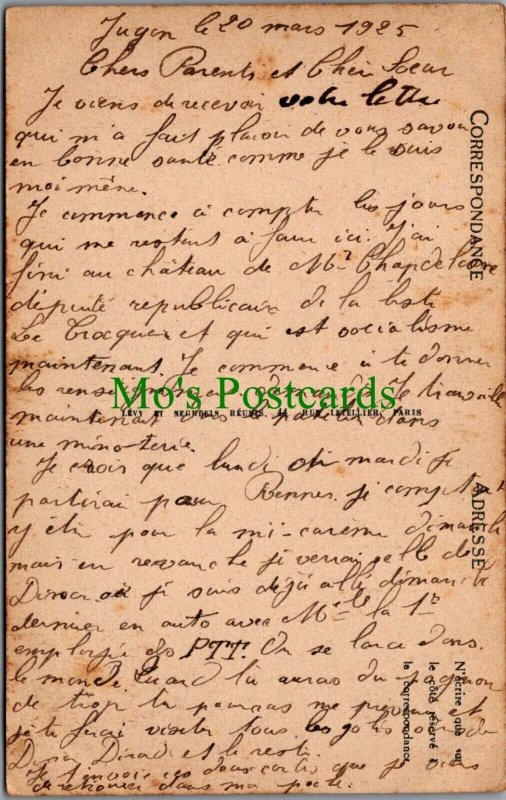 Jugon le 20 mars 1925
Chers Parents et Cher Soeur
Je viens de recevoir votre lettre
qui m'a fait plaisir de vous savoir
en bonne santé comme je le suis
moi même.
Je commence à compter les jours
qui me restent à faire ici. J'ai
fini au château de Mr Chapdelaine
député republicain de la liste
Le Trocquer et qui est socialisme
maintenant. Je commence à te donner
les Je travaille
maintenant dans
une minoterie.
Je crois que lundi ou mardi je
partirai pour Rennes. je comptais
y être pour la mi-carême dimanche
mais en revanche je verrai celle de
Dinan où je suis déjà allé dimanche
dernier en auto avec Mlle la 1re
employée des PTT. On se lance dans
le monde. Quand tu auras du pognon
de trop tu pourras me et
je te ferai visiter tous les jolis
Dinan Dinard et le reste.
Je t'envoie ces deux cartes que je viens
de retrouver dans ma poche.
CORRESPONDANCE
ADRESSE
N'écrire que sur
le côté réservé à
la correspondance
Mo's Postcards
LÉVY ET NEURDEIN RÉUNIS, 44, RUE LETELLIER, PARIS